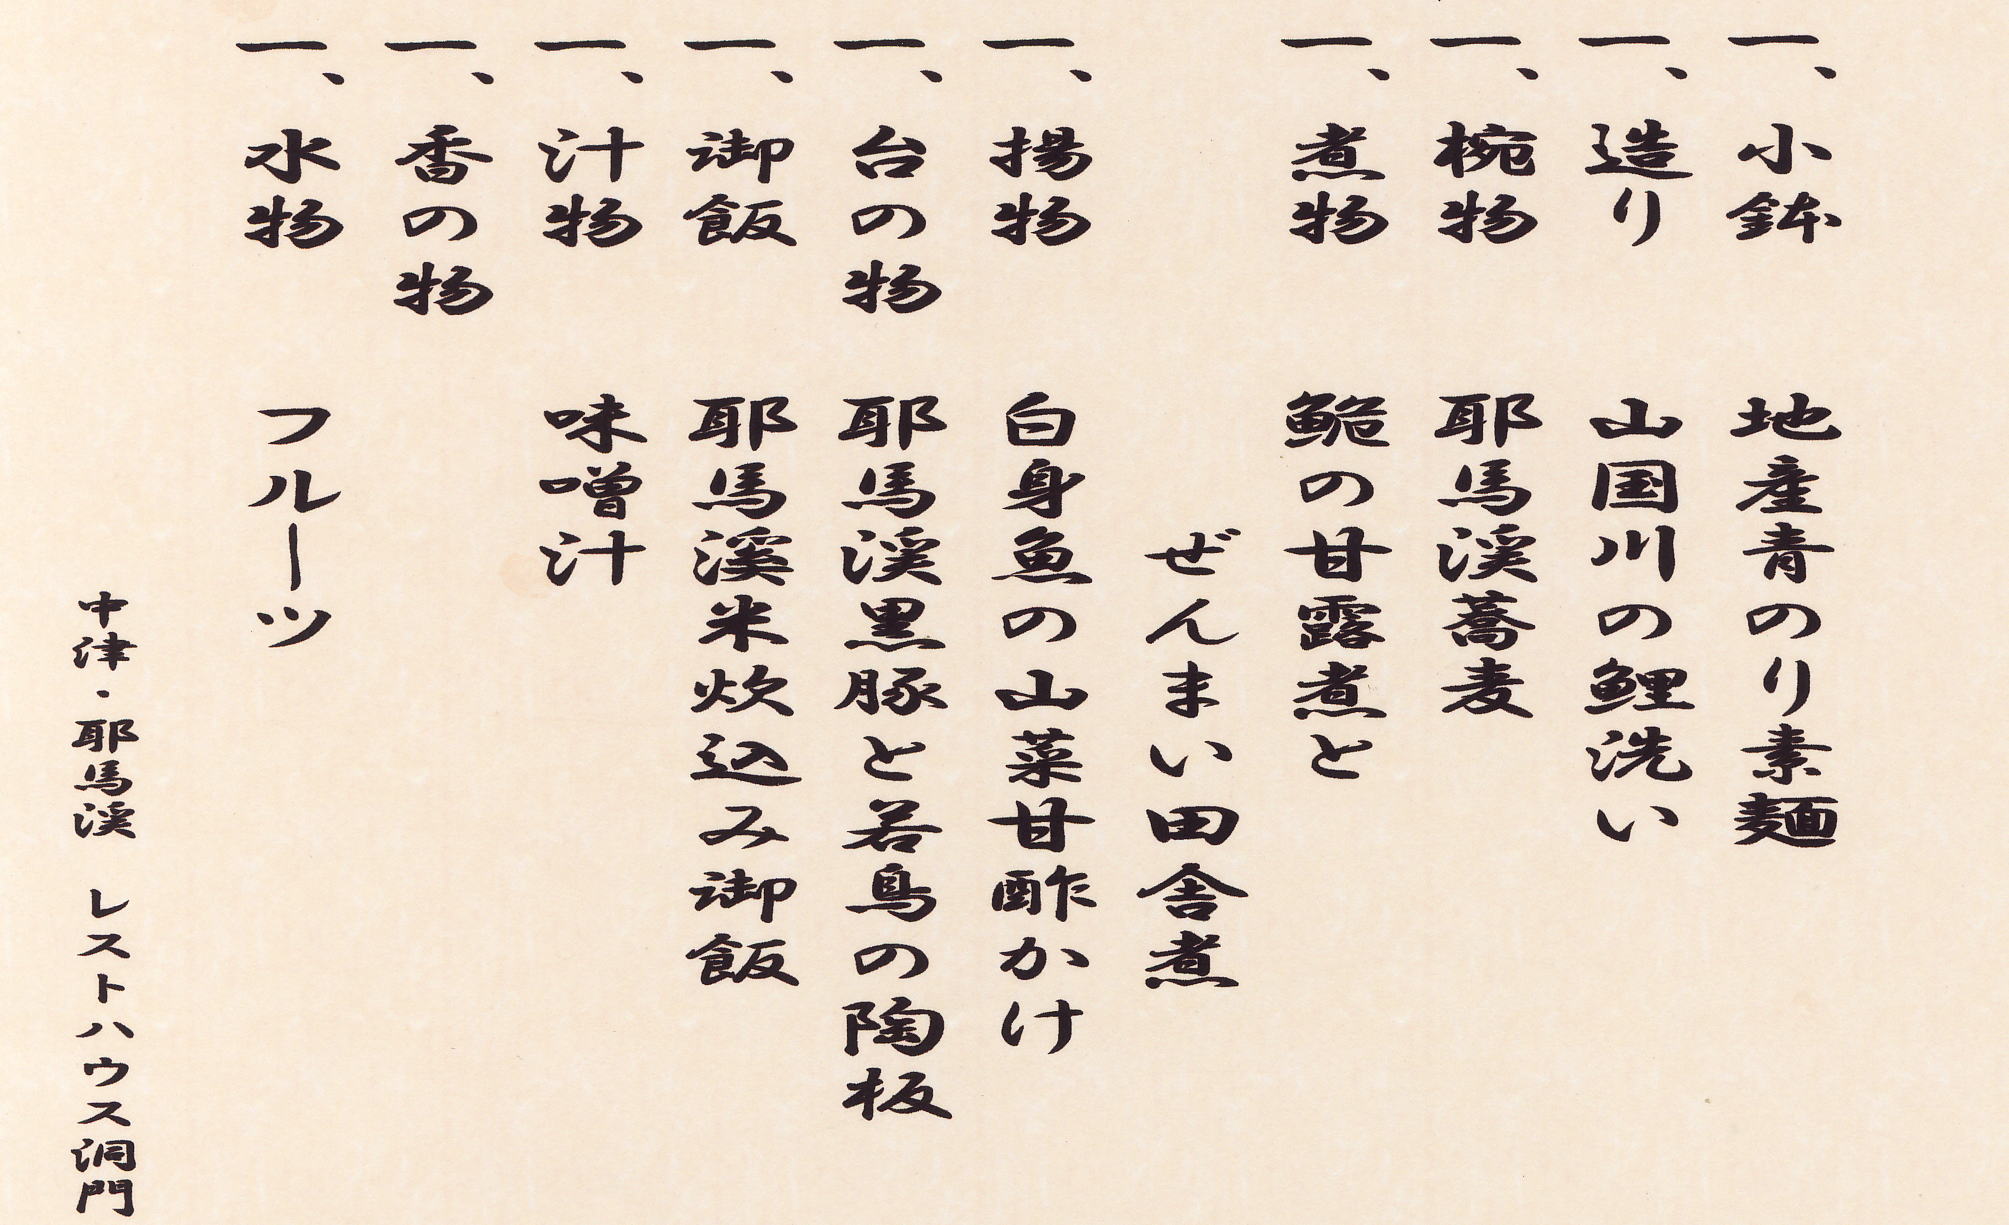 一、小鉢　地産青のり素麺
一、造り　山国川の鯉洗い
一、椀物　耶馬渓蕎麦
一、煮物　鮠の甘露煮と
ぜんまい田舎煮
一、揚物　白身魚の山菜甘酢かけ
一、台の物　耶馬渓黒豚と若鳥の陶板
一、御飯　耶馬渓米炊込み御飯
一、汁物　味噌汁
一、香の物
一、水物　フルーツ
中津・耶馬渓　レストハウス洞門